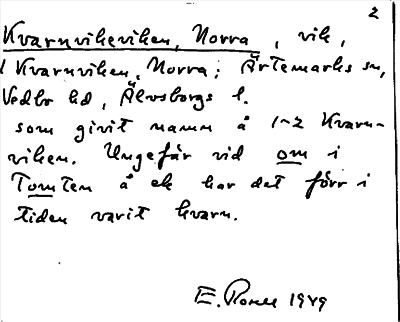 2
Kvarnvikeviken, Norra, vik,
i Kvarnviken, Norra; Ärtemarks sn,
Vedbo hd, Älvsborgs l.
som givit namn å 1-2 Kvarn-
viken. Ungefär vid om i
Tomten å ek har det förr i
tiden varit kvarn.
E. 1949